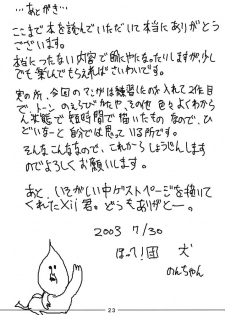 …あとがき…
ここまで本を読んでいただいて本当にありがとう
ございます。
本当につたない内容で恥になったりしますが、少し
でも楽しんでもらえればさいわいです。
実の所、今回のマンガは練習に入れて2作目
で、トーンのえらびかたや、その他色々よくわから
ん状態で短時間で描いたものなので、ひ
どいなーと自分では思っている所です。
そんなこんななので、これからしょうじんします
のでよろしくお願いします。
あと、いそがしい中ゲストページを描いて
くれたXij君。どうもありがとー。
2003 7/30
ほって!団 犬
のんちゃん
23